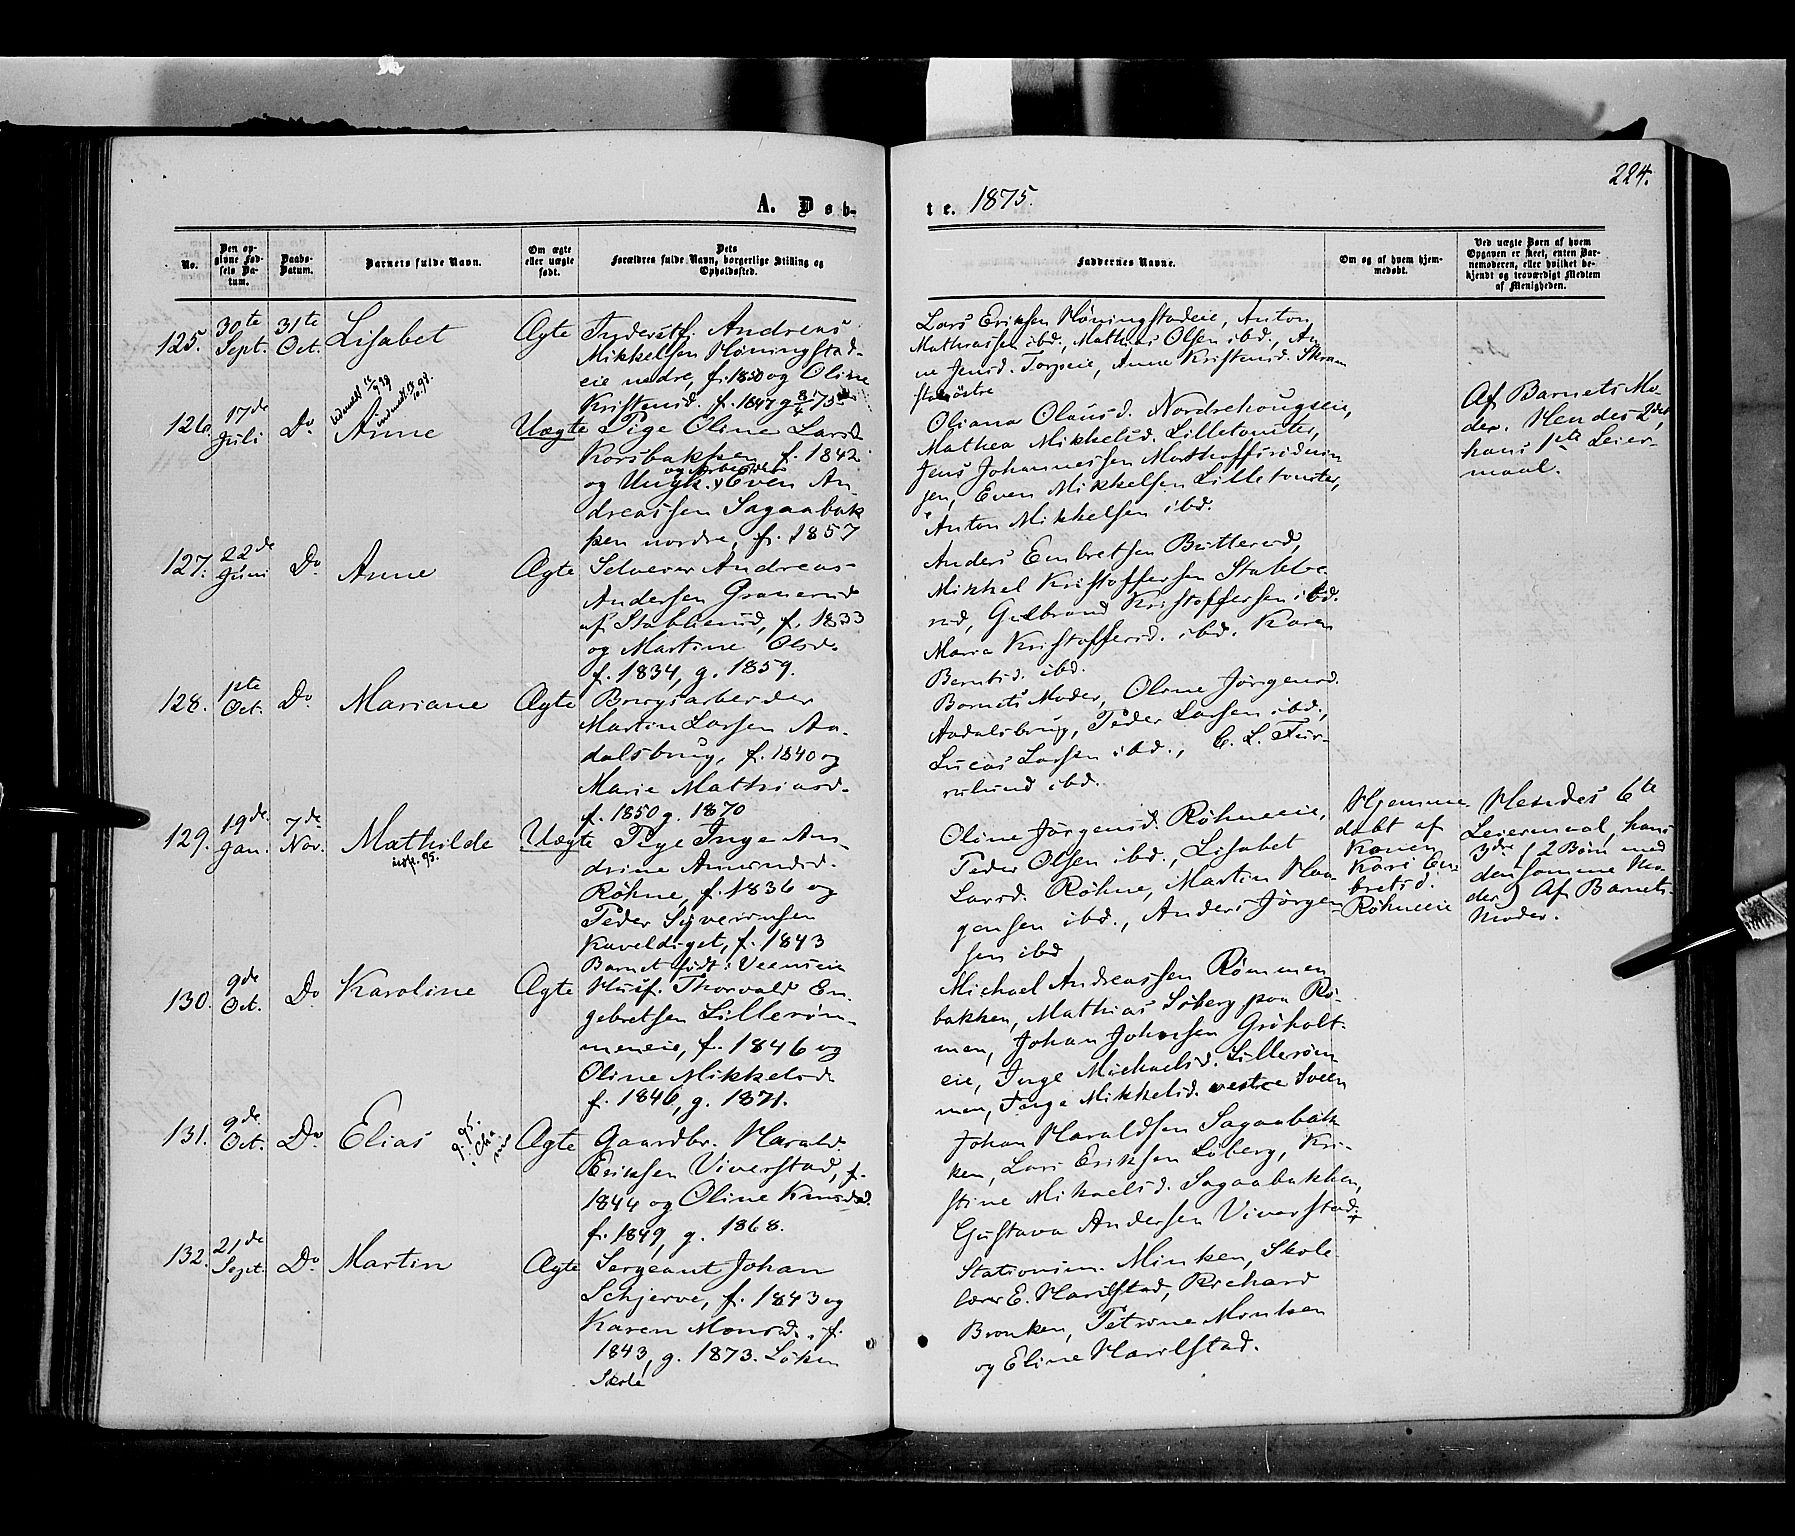 224.
A. Døb-
te. 1875.
No.
Den op-
givne Fød-
sels Da-
tum.
Daabs-
Datum.
Barnets fulde Navn.
Om ægte
eller uægte
født.
Dets
Forældres fulde Navn, borgerlige Stilling og
Opholdssted.
Faddernes Navne.
Om og af hvem hjem-
medøbt.
Ved uægte Børn af hvem
Opgaven er skeet, enten Bar-
nemoderen, eller hvilket be-
kjendt og troværdigt Medlem
af Menigheden.
125.
30te
Sept.
31te
Oct.
Lisabet
Ægte
Inderstf. Andreas
Mikkelsen Høningstad-
eie nedre, f. 1850 og Oline
Kristensd. f. 1847 g 8/4 75
Lars Eriksen Høningstadeie, Anton
Mathiassen ibd., Mathias Olsen ibd., An
ne Jensd. Torpseie, Anne Kristensd. Skram
stad østre
126.
17de
Juli
Do
Anne
Uægte
Pige Oline Larsd.
Korsbakken f. 1842
og Arbeider
og Ungk. Even An-
dreassen Sagaabak
ken nordre, f. 1857
Oliana Olausd. Nordrehougseie,
Mathea Mikkelsd. Lilletomter,
Jens Johannessen
Even Mikkelsen Lilletomter,
Anton Mikkelsen ibd.
Af Barnets Mo-
der. Hendes 2det,
hans 1ste Leier-
maal.
127.
22de
Juni
Do
Anne
Ægte
Selveier Andreas
Andersen Granerud
af Stabberud, f. 1833
og Martine Olsd.
f. 1834, g. 1859.
Anders Embretsen Butterud,
Mikkel Kristoffersen Stabbe-
rud, Gulbrand Kristoffersen ibd.
Maria Kristoffersd. ibd. Karen
Berntsd. ibd.
128.
1ste
Oct.
Do
Mariane
Ægte
Brugsarbeider
Martin Larsen Aa-
dalsbrug, f. 1840 og
Marie Mathiasd.
f. 1850 g. 1870
Barnets Moder, Oline Jørgensd.
Aadalsbrug, Peder Larsen ibd.,
Lucas Larsen ibd., C. L. Fur-
ulund ibd.
129.
19de
Jan.
7de
Nov.
Mathilde
Uægte
Pige Inge An-
drine Amundsd.
Røhne, f. 1836 og
Peder Syversinsen
Kaveldiget, f. 1843
Barnet født i Veenseie
Oline Jørgensd. Røhneeie,
Peder Olsen ibd., Lisabet
Larsd. Røhne, Martin Haa-
gensen ibd., Anders Jørgen-
sen ibd
Hjemme
døbt af
Konen
Kari Em-
bretsd.
Røhneeie
Hendes 6te
Leiermaal, hans
3die (2 Børn med
densamme Mo-
der) Af Barnets
Moder.
130.
9de
Oct.
Do
Karoline
Ægte
Husf. Thorvald En-
gebretsen Lillerøm-
meneie, f. 1846 og
Oline Mikkelsd.
f. 1846, g. 1871.
Michael Andreassen Rømmen
bakken, Mathias Løberg paa Rø-
men, Johan Johnsen Grøholt-
eie, Inge Michaelsd. Lillerøm
men, Inge Mikkelsd. vestre Sveen
131.
9de
Oct.
Do
Elias
Ægte
Gaardbr. Harald
Eriksen Viverstad, f.
1844 og Oline Knudsd.
f. 1849, g. 1868.
Johan Haraldsen Sagaabak-
ken, Lars Eriksen Løberg, Kri-
stine Mikaelsd. Sagaabakken,
Gustava Andersen Viverstad.
132.
21de
Sept.
Do
Martin
Ægte
Sergeant Johan
Schjerve, f. 1843 og
Karen Monsd., f.
1843, g. 1873. Løken
Skole
Stationsm. Minken, Skole-
lærer E. Harilstad, Richard
Bronken, Petrine Minken
og Eline Harilstad.